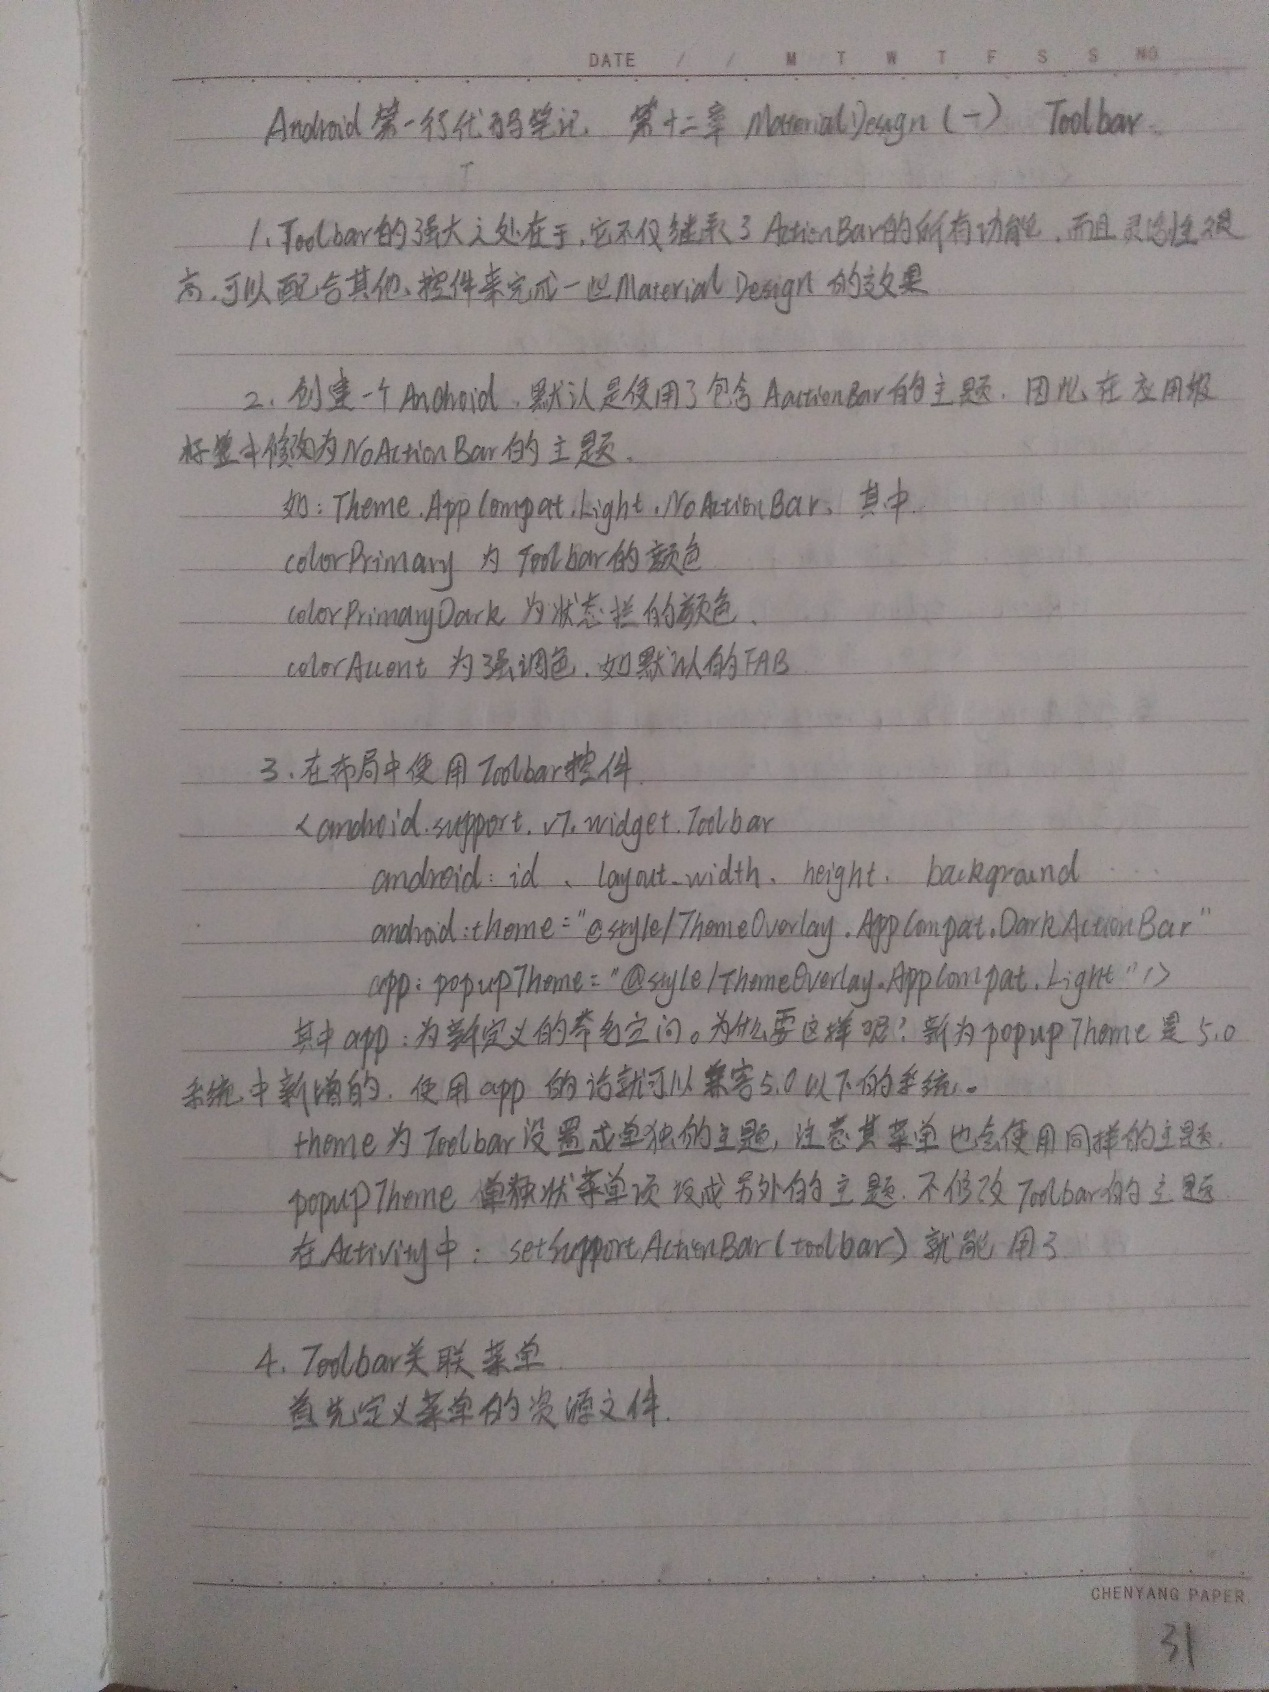 DATE / / M T W T F S S NO
Android 第一行代码笔记. 第十二章 Material Design (一) Toolbar
1. Toolbar的强大之处在于,它不仅继承了ActionBar的所有功能,而且灵活性很
高,可以配合其他控件来完成一些Material Design的效果
2. 创建一个Android,默认是使用了包含AactionBar的主题. 因此在应用级
标签中修改为NoActionBar的主题.
如: Theme.AppCompat.Light.NoActionBar. 其中
colorPrimary 为 Toolbar的颜色
colorPrimaryDark 为状态栏的颜色.
colorAccent 为强调色,如默认的FAB
3.在布局中使用Toolbar控件
<android.support.v7.widget.Toolbar
android:id 、 layout_width、 height、 background
android:theme="@style/ThemeOverlay.AppCompat.DarkActionBar"
app:popupTheme="@style/ThemeOverlay.AppCompat.Light" />
其中app:为新定义的命名空间。为什么要这样呢?新为popupTheme是5.0
系统中新增的,使用app的话就可以兼容5.0以下的系统。
theme为Toolbar设置成单独的主题,注意其菜单也会使用同样的主题.
popupTheme 单独状菜单项设成另外的主题.不修改Toolbar的主题
在Activity中: setSupportActionBar(toolbar) 就能用了
4. Toolbar关联菜单
首先定义菜单的资源文件.
CHENYANG PAPER
31